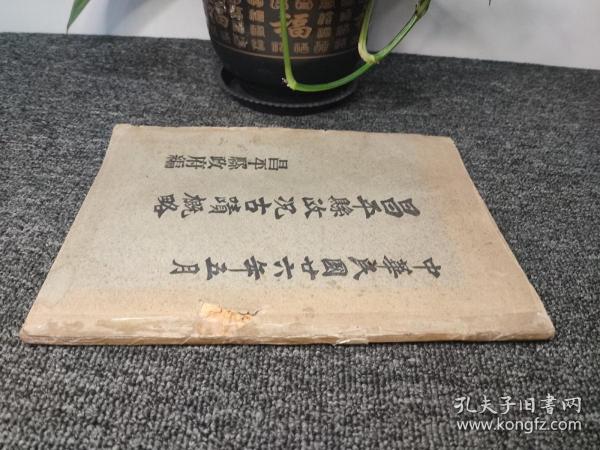 中華民國廿六年五月
昌平縣政況古蹟概略
昌平縣政府編
福
孔夫子旧书网
www.kongfz.com